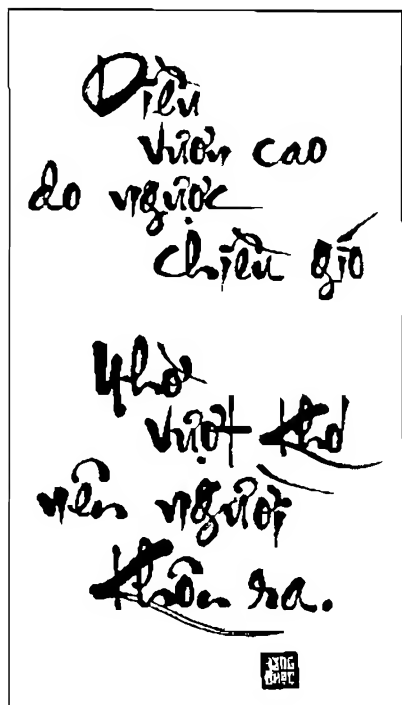 Diều
vươn cao
do ngược
chiều gió
Nhờ
vượt khó
nên người
khôn ra.